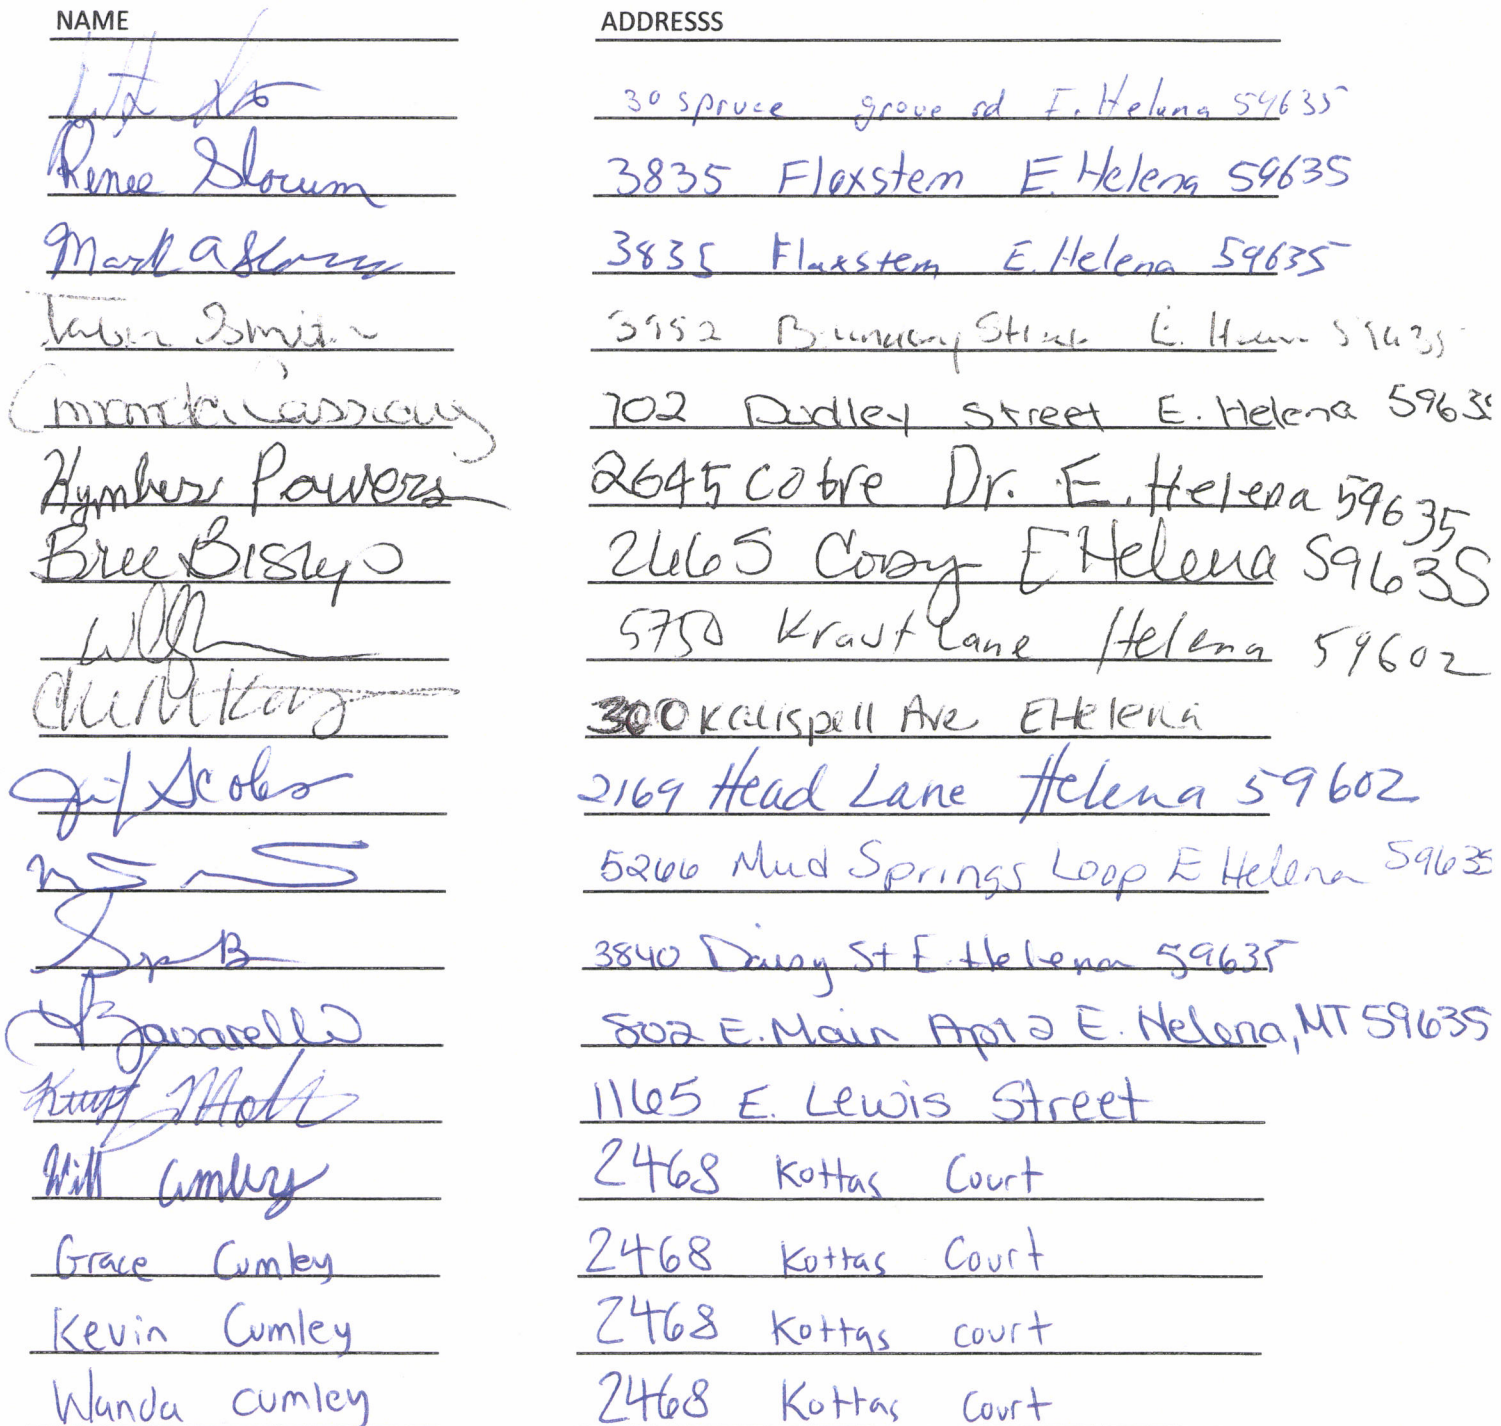 NAME ADDRESSS
30 spruce grove rd E. Helena 59635
Renee Slocum 3835 Flaxstem E. Helena 59635
Mark A Slocum 3835 Flaxstem E. Helena 59635
Smith 3952 E. 59635
Amanda 702 Dudley Street E. Helena 59635
Kymber Powers 2645 Cobre Dr. E. Helena 59635
Bree Bishop 2665 Cosy E Helena 59635
5750 Kraut Lane Helena 59602
300 Kalispell Ave E Helena
2169 Head Lane Helena 59602
5266 Mud Springs Loop E Helena 59635
3840 Daisy St E. Helena 59635
802 E. Main Apt 2 E. Helena, MT 59635
Kurt Mott 1165 E. Lewis Street
Will Cumley 2468 Kottas Court
Grace Cumley 2468 Kottas Court
Kevin Cumley 2468 Kottas court
Wanda cumley 2468 Kottas Court